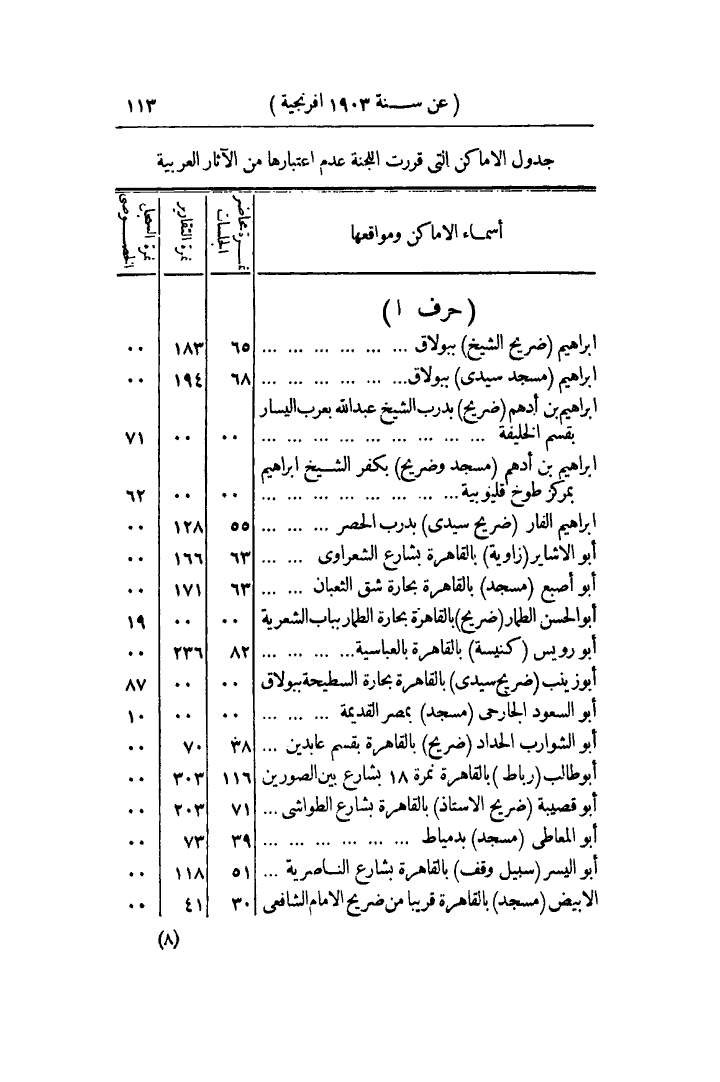 ( عن سنة ١٩٠٣ افرنجية )  ١١٣
جدول الاماكن التى قررت اللجنة عدم اعتبارها من الآثار العربية
أسماء الاماكن ومواقعها  نمرة محاضر الجلسات  نمرة التقارير  نمرة السجل الخصوصى
( حرف ا )
ابراهيم (ضريح الشيخ) ببولاق ... ... ... ... ... ...  ٦٥  ١٨٣  ٠٠
ابراهيم (مسجد سيدى) ببولاق... ... ... ... ... ...  ٦٨  ١٩٤  ٠٠
ابراهيم بن أدهم (ضريح) بدرب الشيخ عبدالله بعرب اليسار
بقسم الخليفة ... ... ... ... ... ... ... ... ...  ٠٠  ٠٠  ٧١
ابراهيم بن أدهم (مسجد وضريح) بكفر الشيخ ابراهيم
بمركز طوخ قليوبية... ... ... ... ... ... ... ...  ٠٠  ٠٠  ٦٢
ابراهيم الفار (ضريح سيدى) بدرب الحصر ... ... ...  ٥٥  ١٢٨  ٠٠
أبو الاشاير (زاوية) بالقاهرة بشارع الشعراوى ... ...  ٦٣  ١٦٦  ٠٠
أبو أصبع (مسجد) بالقاهرة بحارة شق الثعبان ... ...  ٦٣  ١٧١  ٠٠
أبوالحسن الطمار (ضريح) بالقاهرة بحارة الطمار بباب الشعرية  ٠٠  ٠٠  ١٩
أبو رويس (كنيسة) بالقاهرة بالعباسية... ... ... ...  ٨٢  ٢٣٦  ٠٠
أبوزينب (ضريح سيدى) بالقاهرة بحارة السطيحة ببولاق  ٠٠  ٠٠  ٨٧
أبو السعود الجارحى (مسجد) بمصر القديمة ... ... ...  ٠٠  ٠٠  ١٠
أبو الشوارب الحداد (ضريح) بالقاهرة بقسم عابدين ...  ٣٨  ٧٠  ٠٠
أبوطالب (رباط ) بالقاهرة نمرة ١٨ بشارع بين الصورين  ١١٦  ٣٠٣  ٠٠
أبو قصيبة (ضريح الاستاذ) بالقاهرة بشارع الطواشى ...  ٧١  ٢٠٣  ٠٠
أبو المعاطى (مسجد) بدمياط ... ... ... ... ... ...  ٣٩  ٧٣  ٠٠
أبو اليسر (سبيل وقف) بالقاهرة بشارع الناصرية ...  ٥١  ١١٨  ٠٠
الابيض (مسجد) بالقاهرة قريبا من ضريح الامام الشافعى  ٣٠  ٤١  ٠٠
(٨)